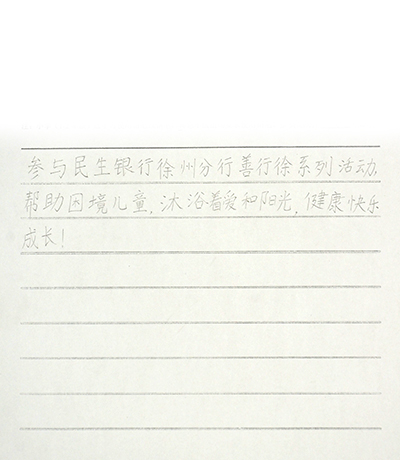 参与民生银行徐州分行善行徐系列活动,
帮助困境儿童,沐浴着爱和阳光,健康快乐
成长!